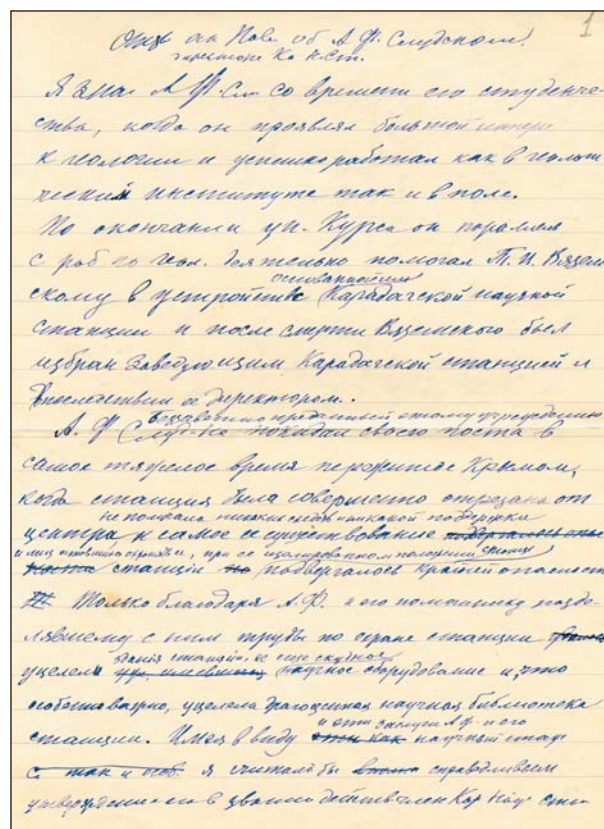 1
Отзыв ак Пав об А. Ф. Слудском.
директоре Ка н. ст.
Я знаю А. Ф. Сл со времени его студенче-
ства, когда он проявлял большой интерес
к геологии и успешно работал как в геологи
ческим институте так и в поле.
По окончании ун. Курса он параллел
с раб по геол. деятельно помогал Т. И. Вязем
основанной им
скому в устройстве Карадагской научной
станции и после смерти Вяземского был
избран Заведующим Карадагской станцией и
впоследствии ее директором.
Беззаветно преданный этому учреждению
А. Ф Слуд. не покидал своего поста в
самое тяжелое время пережитое Крымом,
когда станция была совершенно отрезана от
не получала никаких средств никакой поддержки
центра и самое ее существование
и лиц, при ее изолированном положении
станции подвергалось крайней опасност
Только благодаря А. Ф. и его помощнику разде-
лявшему с ним труды по охране станции
здания станции, ее еще скудное
уцелели научное оборудование и, что
особенно важно, уцелела драгоценная научная библиотека
и эти заслуги А. Ф. и его
станции. Имея в виду эти как научный стаж
с так и особ. я считал бы справедливым
утверждение его в звании действ член Кар Науч стан